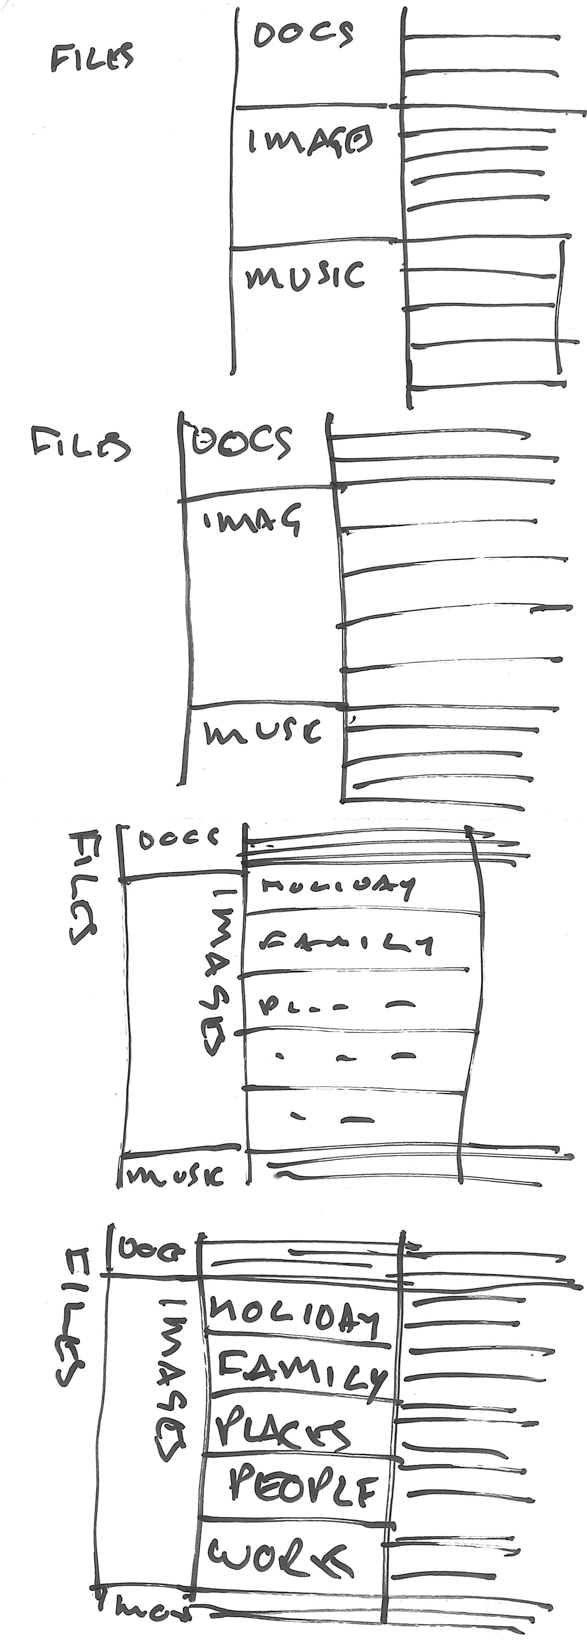 DOCS
FILES
IMAGES
MUSIC
FILES
DOCS
IMAG
MUSC
FILES
DOCS
IMAGES
HOLIDAY
FAMILY
PL
MUSIC
FILES
DOC
IMAGES
HOLIDAY
FAMILY
PLACES
PEOPLE
WORK